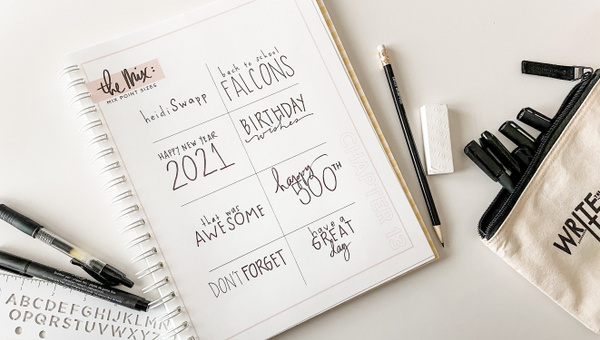 the Mix:
MIX POINT SIZES
heidi Swapp
back to school
FALCONS
HAPPY NEW YEAR
2021
BIRTHDAY
wishes
that was
AWESOME
happy
500TH
DON'T FORGET
have a
GREAT
day
CHAPTER
ABCDEFGHIJKLMN
OPQRSTUVWXYZ
WRITE